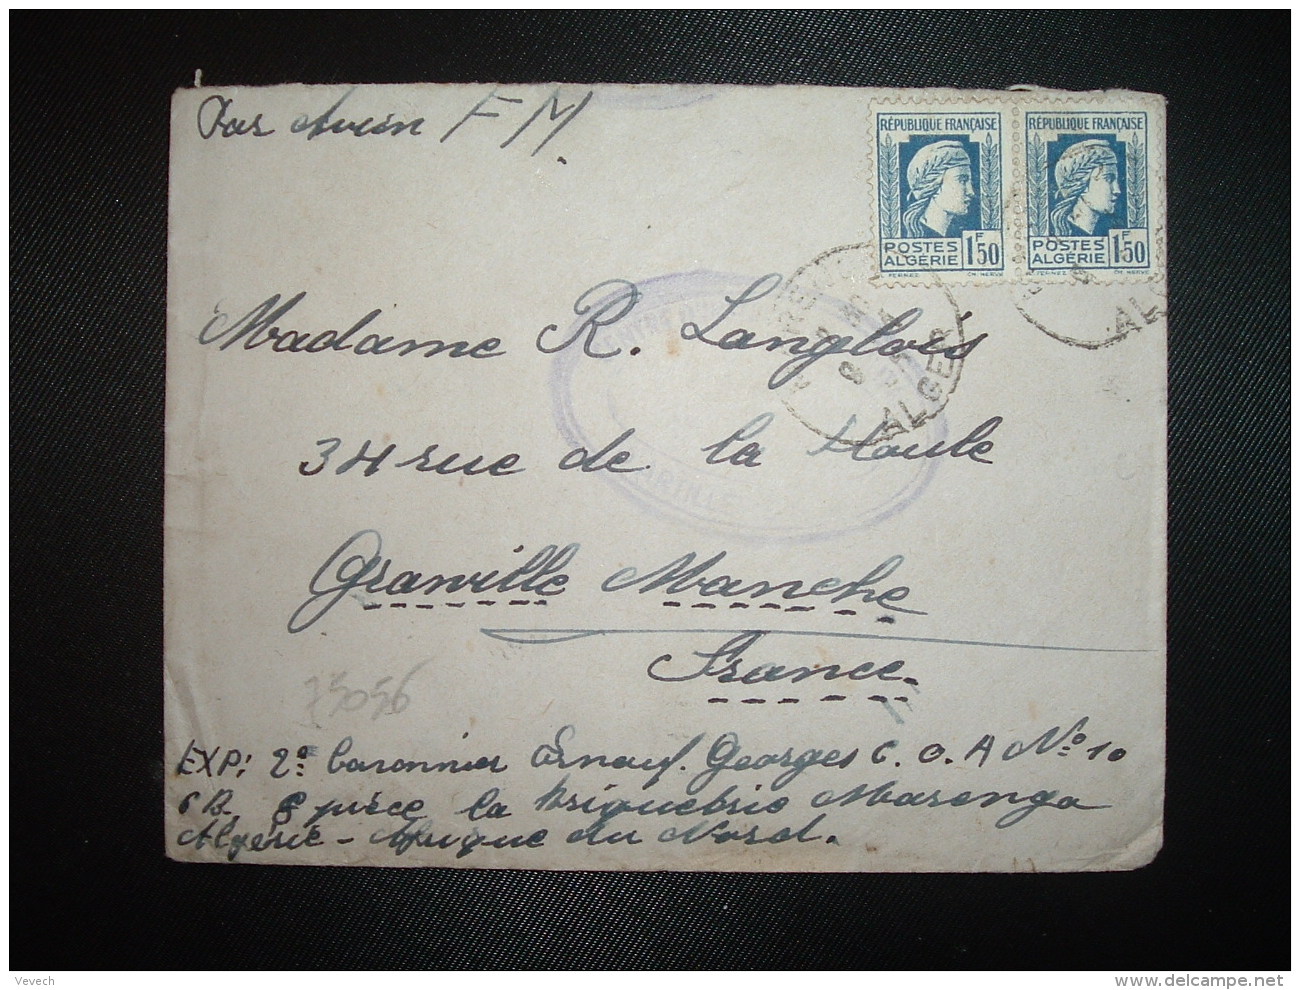 Par Avion FM.
RÉPUBLIQUE FRANÇAISE
POSTES
ALGÉRIE
1F50
RÉPUBLIQUE FRANÇAISE
POSTES
ALGÉRIE
1F50
ALGER
Madame R. Langlois
34 rue de la Houle
Granville Manche
France.
75056
EXP: 2e Canonnier Georges C. O. A No 10
6 B. 8 pièce la Marengo
Algérie - Afrique du Nord.
Vevech
www.delcampe.net